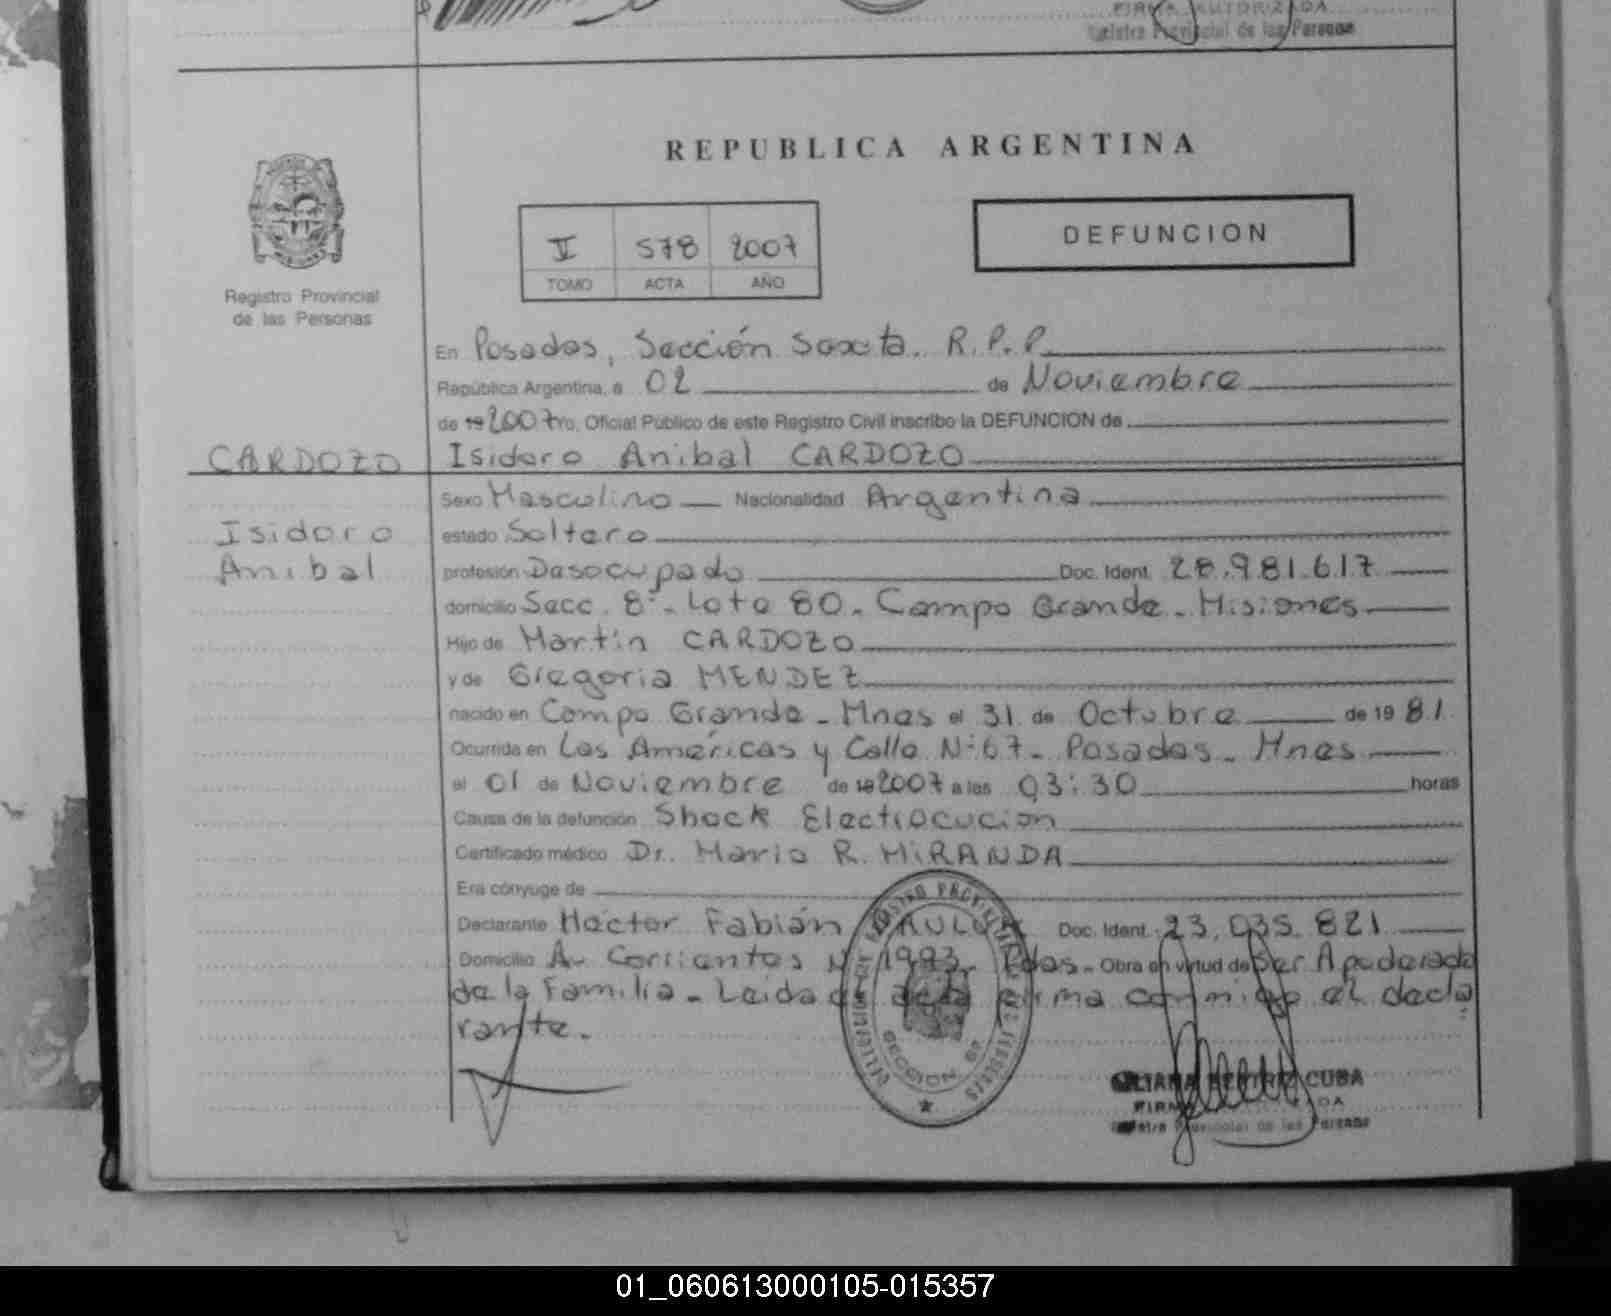 FIRMA AUTORIZADA
Registro Provincial de las Personas
REPUBLICA ARGENTINA
Registro Provincial
de las Personas
II 578 2007
TOMO ACTA AÑO
DEFUNCION
En Posadas, Sección Sexta. R.P.P.
República Argentina, a 02 de Noviembre
de 19 2007 Yo, Oficial Público de este Registro Civil inscribo la DEFUNCION de
CARDOZO Isidoro Anibal CARDOZO
Sexo Masculino Nacionalidad Argentina
Isidoro estado Soltero
Anibal profesión Desocupado Doc. Ident. 28.981.617
domicilio Secc. 8ª - Lote 80 - Campo Grande - Misiones
Hijo de Martín CARDOZO
y de Gregoria MENDEZ
nacido en Campo Grande - Mnes el 31 de Octubre de 19 81
Ocurrida en Las Américas y Calle Nº 67 - Posadas - Mnes
el 01 de Noviembre de 19 2007 a las 03:30 horas
Causa de la defunción Shock Electrocucion
Certificado médico Dr. Mario R. MIRANDA
Era cónyuge de
Declarante Héctor Fabián Doc. Ident. 23.035.821
Domicilio Av. Corrientes Nº 1993 Pdas - Obra en virtud de Ser Apoderado
de la Familia - Leida el acta firma conmigo el decla
rante.
SECCION 6ª
BEATRIZ CUBA
FIRMA AUTORIZADA
Registro Provincial de las Personas
01_060613000105-015357